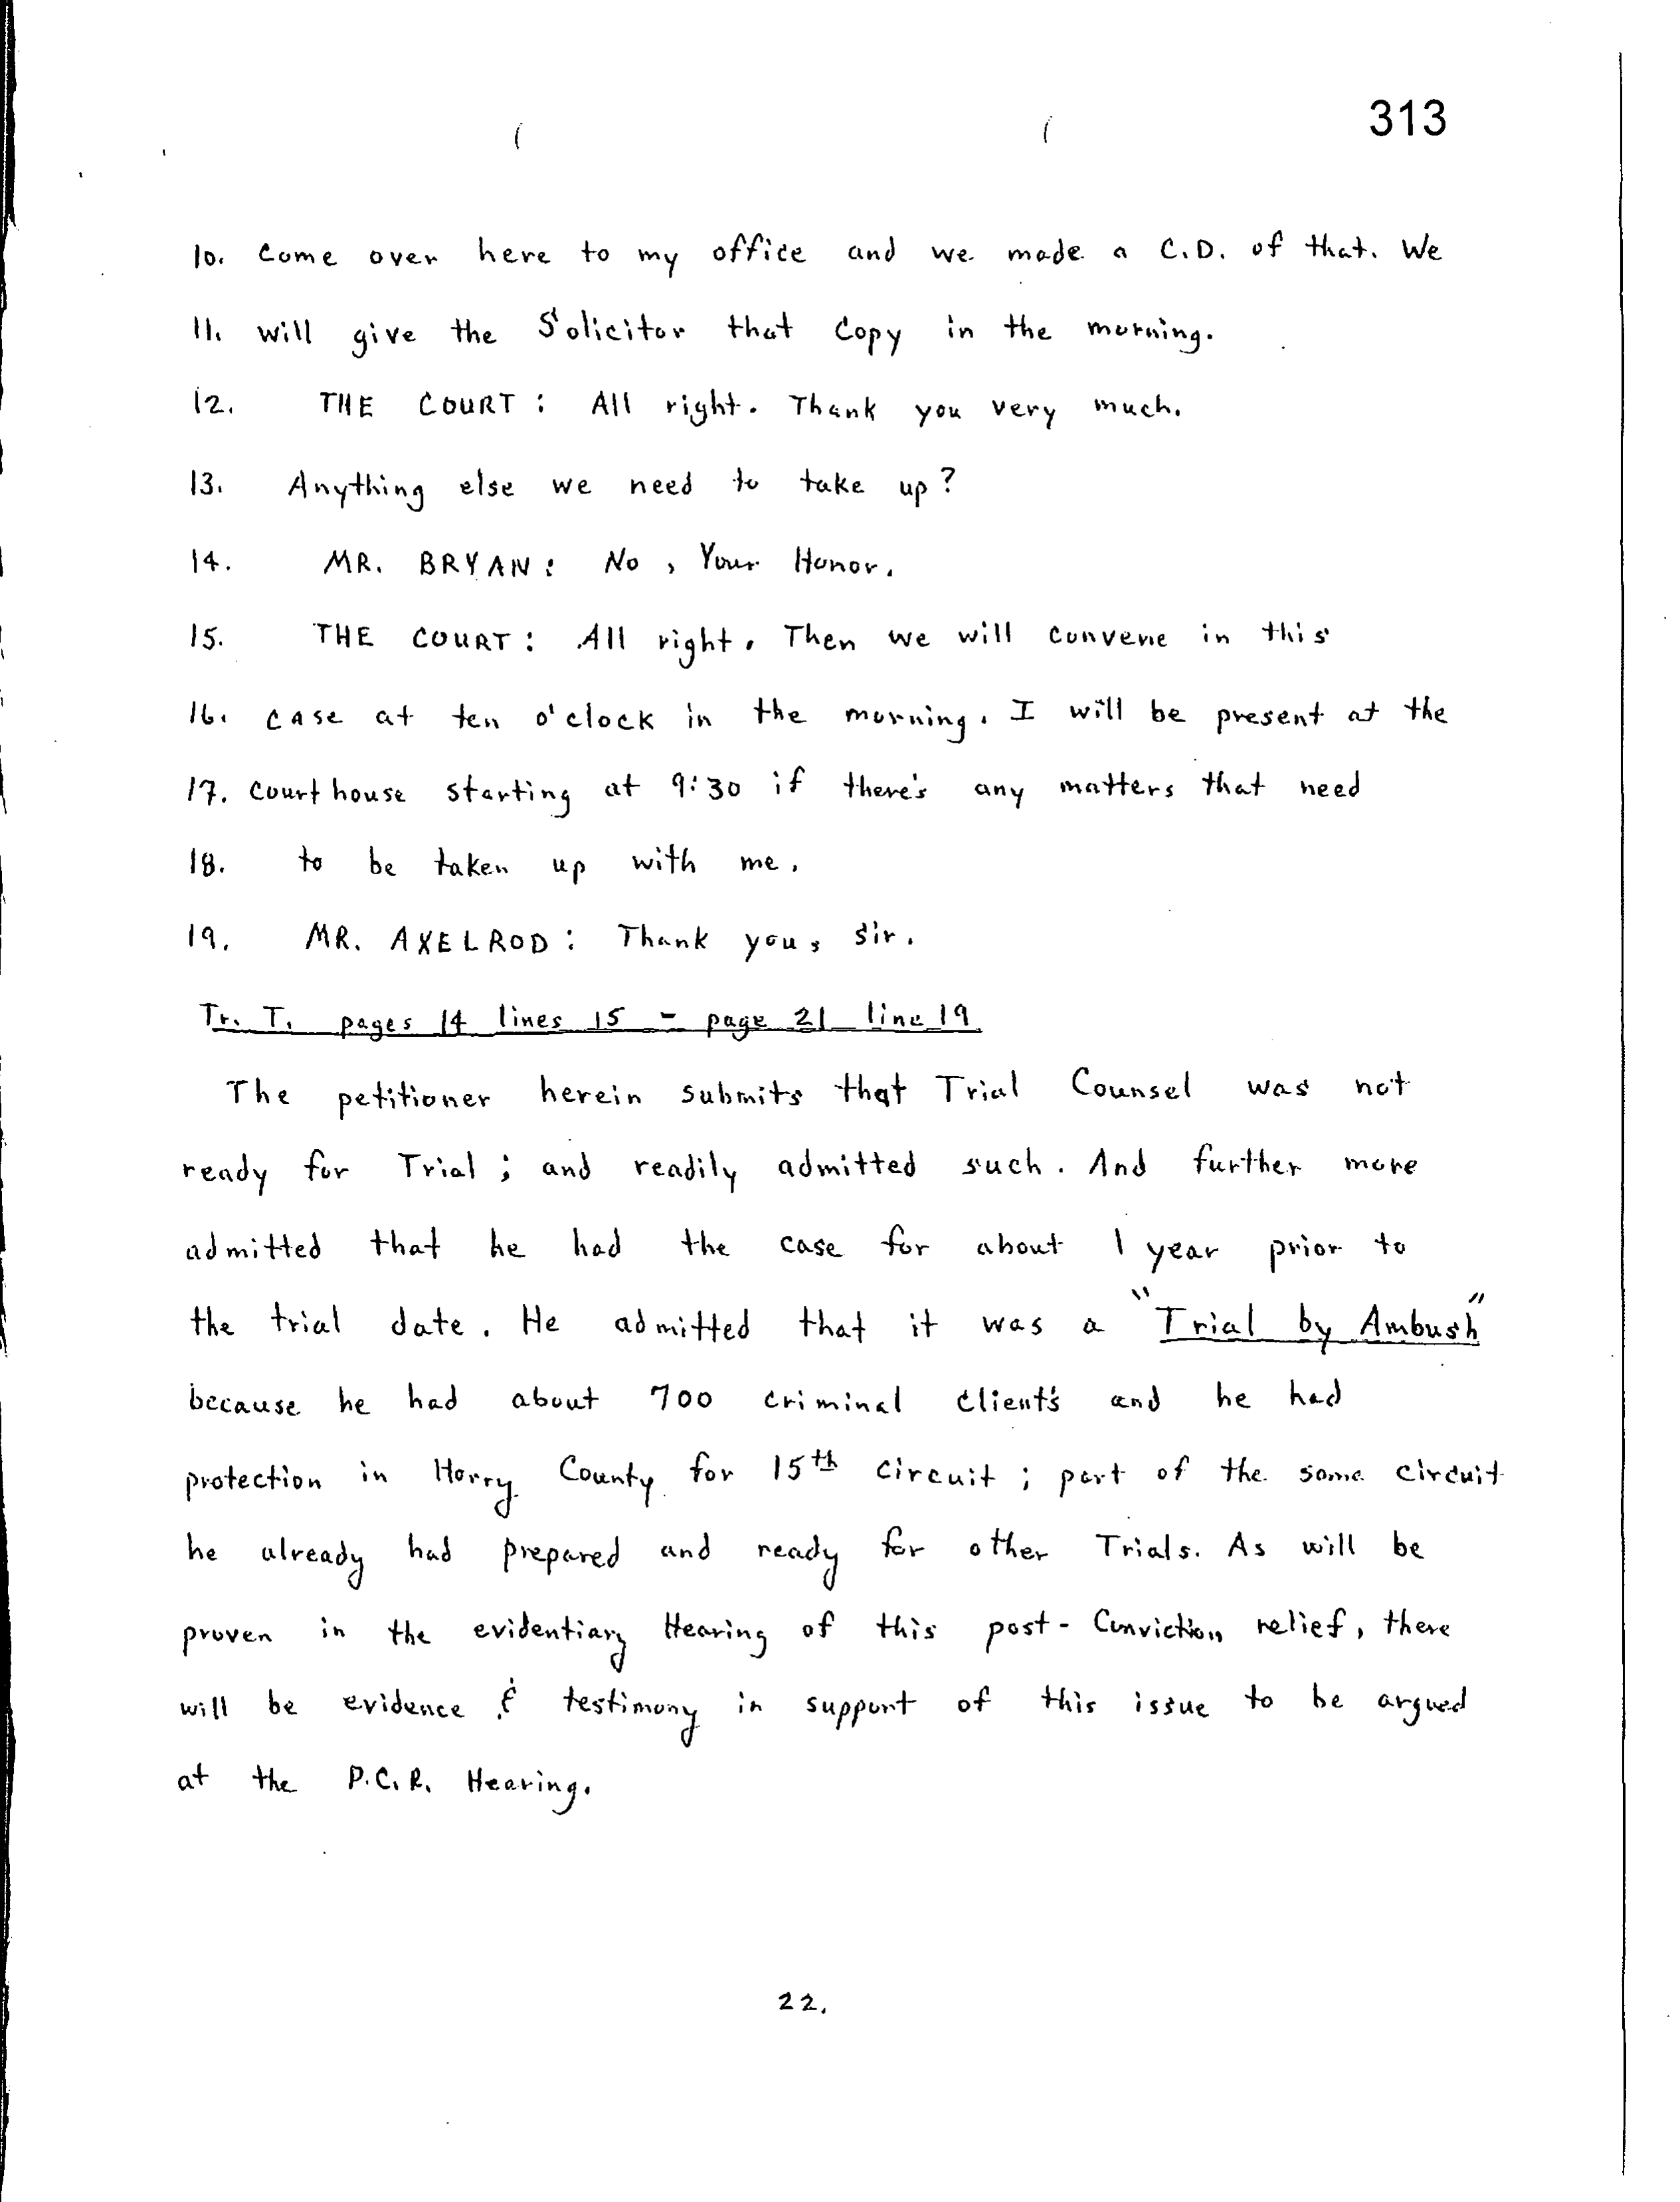 313
10. Come over here to my office and we made a C.D. of that. We
11. will give the Solicitor that Copy in the morning.
12. THE COURT: All right. Thank you very much.
13. Anything else we need to take up?
14. MR. BRYAN: No, Your Honor.
15. THE COURT: All right. Then we will convene in this
16. case at ten o'clock in the morning. I will be present at the
17. Courthouse starting at 9:30 if there's any matters that need
18. to be taken up with me.
19. MR. AXELROD: Thank you, Sir.
Tr. T. pages 14 lines 15 - page 21 line 19
The petitioner herein submits that Trial Counsel was not
ready for Trial; and readily admitted such. And further more
admitted that he had the case for about 1 year prior to
the trial date. He admitted that it was a "Trial by Ambush"
because he had about 700 criminal Client's and he had
protection in Horry County for 15th circuit; part of the same circuit
he already had prepared and ready for other Trials. As will be
proven in the evidentiary Hearing of this post-Conviction relief, there
will be evidence & testimony in support of this issue to be argued
at the P.C.R. Hearing.
22.